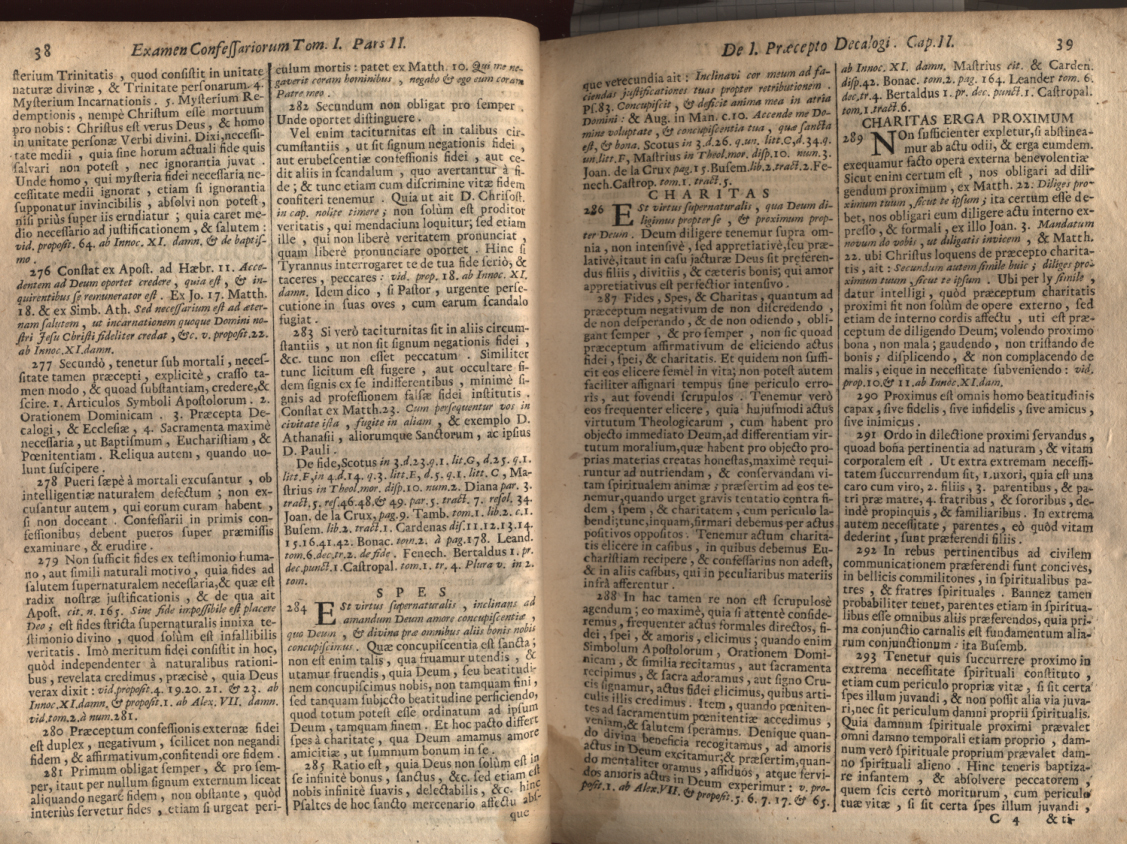 38
Examen Confessariorum Tom. I. Pars II.
sterium Trinitatis , quod consistit in unitate
naturæ divinæ , & Trinitate personarum. 4.
Mysterium Incarnationis . 5. Mysterium Re-
demptionis , nempè Christum esse mortuum
pro nobis : Christus est verus Deus , & homo
in unitate personæ Verbi divini. Dixi, necessi-
tate medii , quia sine horum actuali fide quis
salvari non potest , nec ignorantia juvat .
Unde homo , qui mysteria fidei necessaria ne-
cessitate medii ignorat , etiam si ignorantia
supponatur invincibilis , absolvi non potest ,
nisi priùs super iis erudiatur ; quia caret me-
dio necessario ad justificationem , & salutem :
vid. proposit. 64. ab Innoc. XI. damn. & de baptis-
mo .
276 Constat ex Apost. ad Hæbr. 11. Acce-
dentem ad Deum oportet credere , quia est , & in-
quirentibus se remunerator est . Ex Jo. 17. Matth.
18. & ex Simb. Ath. Sed necessarium est ad æter-
nam salutem , ut incarnationem quoque Domini no-
stri Jesu Christi fideliter credat , &c. v. proposit. 22.
ab Innoc. XI. damn.
277 Secundò , tenetur sub mortali , neces-
sitate tamen præcepti , explicitè , crasso ta-
men modo , & quoad substantiam, credere, &
scire. 1. Articulos Symboli Apostolorum . 2.
Orationem Dominicam . 3. Præcepta De-
calogi , & Ecclesiæ , 4. Sacramenta maximè
necessaria , ut Baptismum , Eucharistiam , &
Pœnitentiam . Reliqua autem , quando uo-
lunt suscipere .
278 Pueri sæpè à mortali excusantur , ob
intelligentiæ naturalem defectum ; non ex-
cusantur autem , qui eorum curam habent ,
si non doceant . Confessarii in primis con-
fessionibus debent pueros super præmissis
examinare , & erudire .
279 Non sufficit fides ex testimonio huma-
no , aut simili naturali motivo , quia fides ad
salutem supernaturalem necessaria, & quæ est
radix nostræ justificationis , & de qua ait
Apost. cit. n. 165. Sine fide impossibile est placere
Deo ; est fides stricta supernaturalis innixa te-
stimonio divino , quod solùm est infallibilis
veritatis . Imò meritum fidei consistit in hoc,
quòd independenter à naturalibus rationi-
bus , revelata credimus , præcisè , quia Deus
verax dixit : vid. proposit. 4. 19. 20. 21. & 23. ab
Innoc. XI. damn, & proposit. 1. ab Alex. VII. damn.
vid. tom. 2. à num. 281.
280 Præceptum confessionis externæ fidei
est duplex , negativum , scilicet non negandi
fidem , & affirmativum, confitendi ore fidem .
281 Primum obligat semper , & pro sem-
per, itaut per nullum signum externum liceat
aliquando negare fidem , non obstante , quòd
interiùs servetur fides , etiam si urgeat peri-
culum mortis : patet ex Matth. 10. Qui me ne-
gaverit coram hominibus , negabo & ego eum coram
Patre meo .
282 Secundum non obligat pro semper .
Unde oportet distinguere .
Vel enim taciturnitas est in talibus cir-
cumstantiis , ut sit signum negationis fidei ,
aut erubescentiæ confessionis fidei , aut ce-
dit aliis in scandalum , quo avertantur à fi-
de ; & tunc etiam cum discrimine vitæ fidem
confiteri tenemur . Quia ut ait D. Chrisost.
in cap. nolite timere ; non solùm est proditor
veritatis , qui mendacium loquitur; sed etiam
ille , qui non liberè veritatem pronunciat ,
quam liberè pronunciare oportet . Hinc si
Tyrannus interrogaret te de tua fide seriò, &
taceres , peccares : vid. prop. 18. ab Innoc. XI.
damn. Idem dico , si Pastor , urgente perse-
cutione in suas oves , cum earum scandalo
fugiat .
283 Si verò taciturnitas sit in aliis circum-
stantiis , ut non sit signum negationis fidei ,
&c. tunc non esset peccatum . Similiter
tunc licitum est fugere , aut occultare fi-
dem signis ex se indifferentibus , minimè si-
gnis ad professionem falsæ fidei institutis .
Constat ex Matth. 23. Cum persequentur vos in
civitate ista , fugite in aliam , & exemplo D.
Athanasii , aliorumque Sanctorum , ac ipsius
D. Pauli .
De fide, Scotus in 3. d. 23. q. 1. lit. G, d. 25. q. 1.
litt. F, in 4. d. 14. q. 3. litt. E, d. 5. q. 1. litt. C , Ma-
strius in Theol. mor. disp. 10. num. 2. Diana par. 3.
tract. 5. res. 46. 48. & 49. par. 5. tract. 7. resol. 34.
Joan. de la Crux, pag. 9. Tamb. tom. 1. lib. 2. c. 1.
Busem. lib. 2. tract. 1. Cardenas dis. 11. 12. 13. 14.
15. 16. 41. 42. Bonac. tom. 2. à pag. 178. Leand.
tom. 6. dec. tr. 2. de fide . Fenech. Bertaldus 1. pr.
dec. punct. 1. Castropal. tom. 1. tr. 4. Plura v. in 2.
tom.
S P E S
284 ESt virtus supernaturalis , inclinans ad
amandum Deum amore concupiscentiæ ,
quo Deum , & divina præ omnibus aliis bonis nobis
concupiscimus . Quæ concupiscentia est sancta;
non est enim talis , qua fruamur utendis , &
utamur fruendis , quia Deum , seu beatitudi-
nem concupiscimus nobis, non tamquam fini,
sed tanquam subjecto beatitudine perficiendo,
quod totum potest esse ordinatum ad ipsum
Deum , tamquam finem . Et hoc pacto differt
spes à charitate , qua Deum amamus amore
amicitiæ , ut summum bonum in se .
285 Ratio est , quia Deus non solùm est in
se infinitè bonus , sanctus , &c. sed etiam est
nobis infinitè suavis , delectabilis , &c. hinc
Psaltes de hoc sancto mercenario affectu abs-
que
De I. Præcepto Decalogi. Cap. II.
39
que verecundia ait : Inclinavi cor meum ad fa-
ciendas justificationes tuas propter retributionem .
Ps. 83. Concupiscit , & deficit anima mea in atria
Domini : & Aug. in Man. c. 10. Accende me Do-
mine voluptate , & concupiscentia tua , quæ sancta
est, & bona. Scotus in 3. d. 26. q. un. litt. C, d. 34. q.
un. litt. F, Mastrius in Theol. mor. disp. 10. num. 3.
Joan. de la Crux pag. 15. Busem. lib. 2. tract. 2. Fe-
nech. Castrop. tom. 1. tract. 5.
C H A R I T A S
286 ESt virtus supernaturalis , qua Deum di-
ligimus propter se , & proximum prop-
ter Deum . Deum diligere tenemur supra om-
nia , non intensivè , sed appretiativè, seu præ-
lativè, itaut in casu jacturæ Deus sit præferen-
dus filiis , divitiis , & cæteris bonis; qui amor
appretiativus est perfectior intensivo .
287 Fides , Spes , & Charitas , quantum ad
præceptum negativum de non discredendo ,
de non desperando , & de non odiendo , obli-
gant semper , & pro semper , non sic quoad
præceptum affirmativum de eliciendo actus
fidei , spei , & charitatis . Et quidem non suffi-
cit eos elicere semel in vita; non potest autem
faciliter assignari tempus sine periculo erro-
ris , aut fovendi scrupulos . Tenemur verò
eos frequenter elicere , quia hujusmodi actus
virtutum Theologicarum , cum habent pro
objecto immediato Deum, ad differentiam vir-
tutum moralium, quæ habent pro objecto pro-
prias materias creatas honestas, maximè requi-
runtur ad nutriendam , & conservandam vi-
tam spiritualem animæ ; præsertim ad eos te-
nemur, quando urget gravis tentatio contra fi-
dem , spem , & charitatem , cum periculo la-
bendi; tunc, inquam, firmari debemus per actus
positivos oppositos . Tenemur actum charita-
tis elicere in casibus , in quibus debemus Eu-
charistiam recipere , & confessarius non adest,
& in aliis casibus, qui in peculiaribus materiis
infrà afferentur .
288 In hac tamen re non est scrupulosè
agendum ; eo maximè, quia si attentè conside-
remus , frequenter actus formales directos, fi-
dei , spei , & amoris , elicimus ; quando enim
Simbolum Apostolorum , Orationem Domi-
nicam , & similia recitamus , aut sacramenta
recipimus , & sacra adoramus , aut signo Cru-
cis signamur, actus fidei elicimus, quibus arti-
culis illis credimus . Item , quando pœniten-
tes ad sacramentum pœnitentiæ accedimus ,
veniam, & salutem speramus. Denique quan-
do divina beneficia recogitamus , ad amoris
actus in Deum excitamur; & præsertim, quan-
do mentaliter oramus , assiduos , atque fervi-
dos amoris actus in Deum experimur : v. pro-
posit. 1. ab Alex. VII. & proposit. 5. 6. 7. 17. & 65.
ab Innoc. XI. damn. Mastrius cit. & Carden.
disp. 42. Bonac. tom. 2. pag. 164. Leander tom. 6.
dec. tr. 4. Bertaldus 1. pr. dec. punct. 1. Castropal.
tom. 1. tract. 6.
CHARITAS ERGA PROXIMUM
289 NOn sufficienter expletur, si abstinea-
mur ab actu odii, & erga eumdem.
exequamur facto opera externa benevolentiæ
Sicut enim certum est , nos obligari ad dili-
gendum proximum , ex Matth. 22. Diliges pro-
ximum tuum , sicut te ipsum ; ita certum esse de-
bet, nos obligari eum diligere actu interno ex-
presso, & formali, ex illo Joan. 3. Mandatum
novum do vobis , ut diligatis invicem , & Matth.
22. ubi Christus loquens de præcepto charita-
tis , ait : Secundum autem simile huic ; diliges pro-
ximum tuum , sicut te ipsum . Ubi per ly simile ,
datur intelligi , quòd præceptum charitatis
proximi sit non solùm de opere externo , sed
etiam de interno cordis affectu , uti est præ-
ceptum de diligendo Deum; volendo proximo
bona , non mala ; gaudendo , non tristando de
bonis ; displicendo , & non complacendo de
malis, eique in necessitate subveniendo : vid.
prop. 10. & 11. ab Innoc. XI. dam.
290 Proximus est omnis homo beatitudinis
capax , sive fidelis , sive infidelis , sive amicus ,
sive inimicus .
291 Ordo in dilectione proximi servandus ,
quoad bona pertinentia ad naturam , & vitam
corporalem est . Ut extra extremam necessi-
tatem succurrendum sit, 1. uxori, quia est una
caro cum viro, 2. filiis , 3. parentibus, & pa-
tri præ matre, 4. fratribus , & sororibus , de-
indè propinquis , & familiaribus . In extrema
autem necessitate , parentes, eò quòd vitam
dederint , sunt præferendi filiis .
292 In rebus pertinentibus ad civilem
communicationem præferendi sunt concives,
in bellicis commilitones , in spiritualibus pa-
tres , & fratres spirituales . Bannez tamen
probabiliter tenet, parentes etiam in spiritua-
libus esse omnibus aliis præferendos, quia pri-
ma conjunctio carnalis est fundamentum alia-
rum conjunctionum : ita Busemb.
293 Tenetur quis succurrere proximo in
extrema necessitate spirituali constituto ,
etiam cum periculo propriæ vitæ , si sit certa
spes illum juvandi , & non possit alia via juva-
ri, nec sit periculum damni proprii spiritualis.
Quia damnum spirituale proximi prævalet
omni damno temporali etiam proprio , dam-
num verò spirituale proprium prævalet dam-
no spirituali alieno . Hinc teneris baptiza-
re infantem , & absolvere peccatorem ,
quem scis certò moriturum , cum periculo
tuæ vitæ , si sit certa spes illum juvandi ,
C 4 & ti-